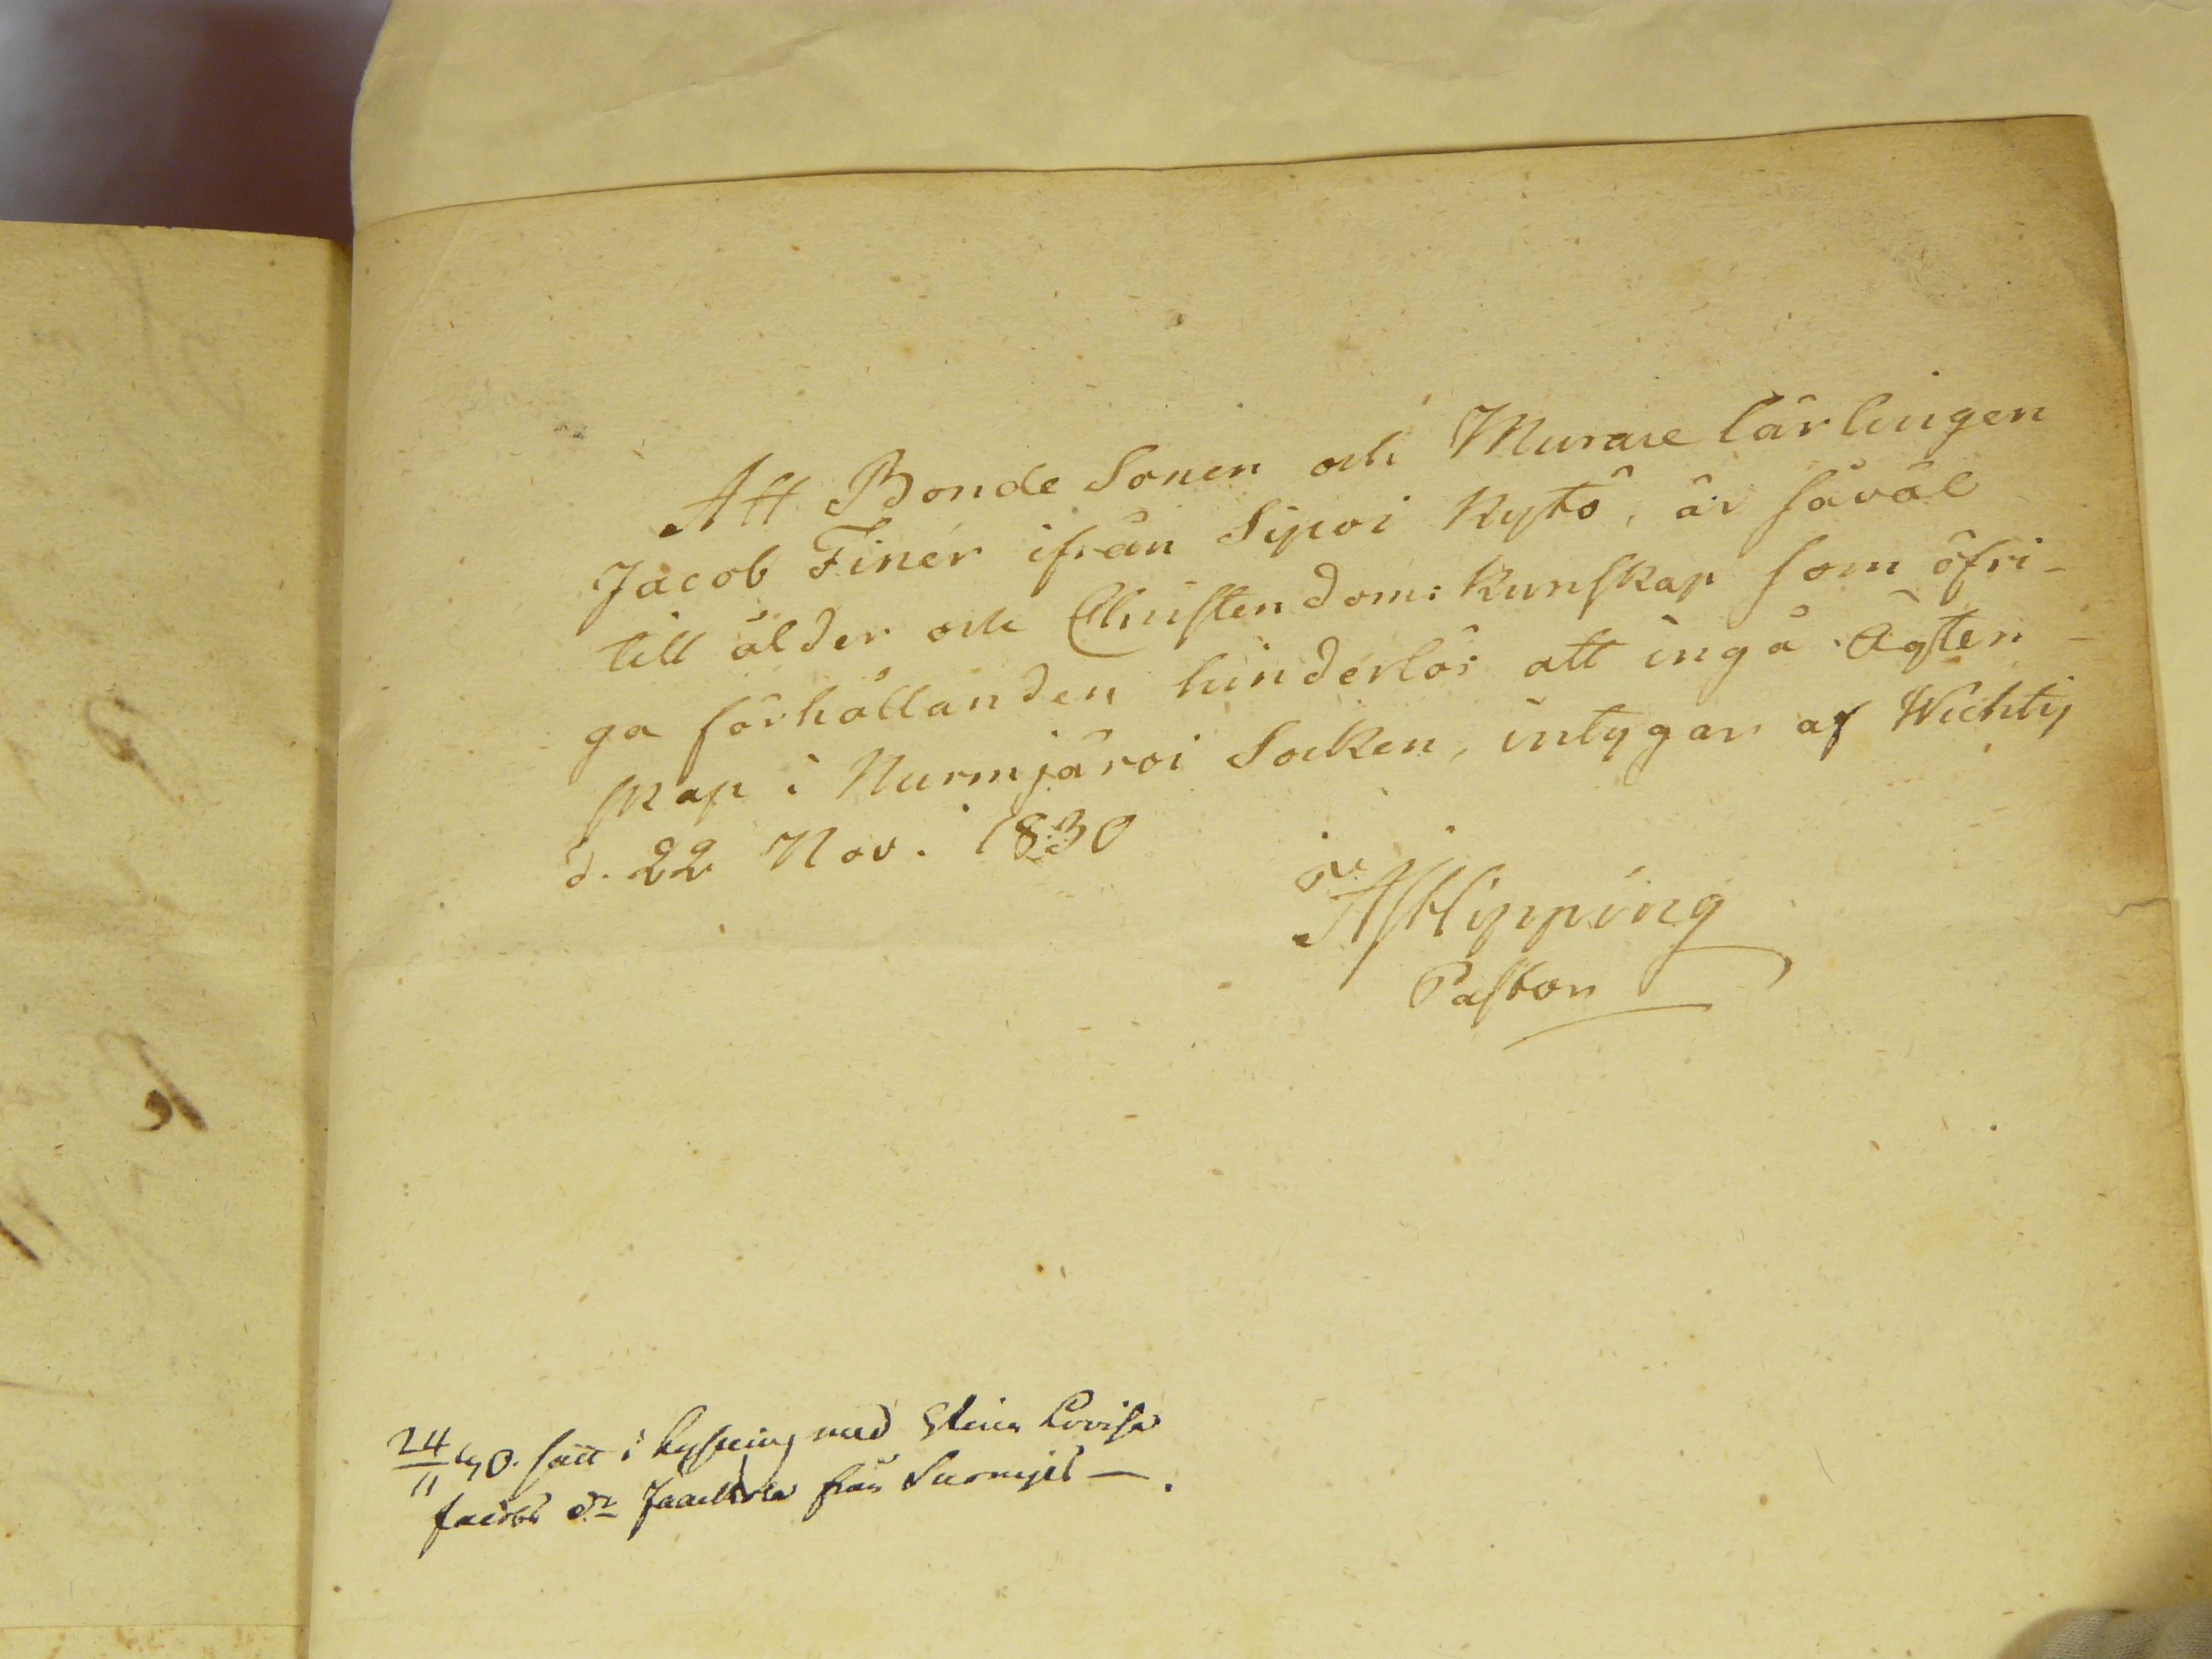 Att Bonde Sonen och Murare lärlingen
Jacob Finér ifrån Sipoi Kytö, är såväl
till ålder och Christendoms Kunskap som öfri-
ga förhållanden hinderlös att ingå Ägten-
skap i Nurmjärvi Socken, intygar af Wichtis
d. 22 Nov. 1830
Hipping
Pastor
24/11 30. satt i lysning med Stina Lovisa
Jacobs dr från